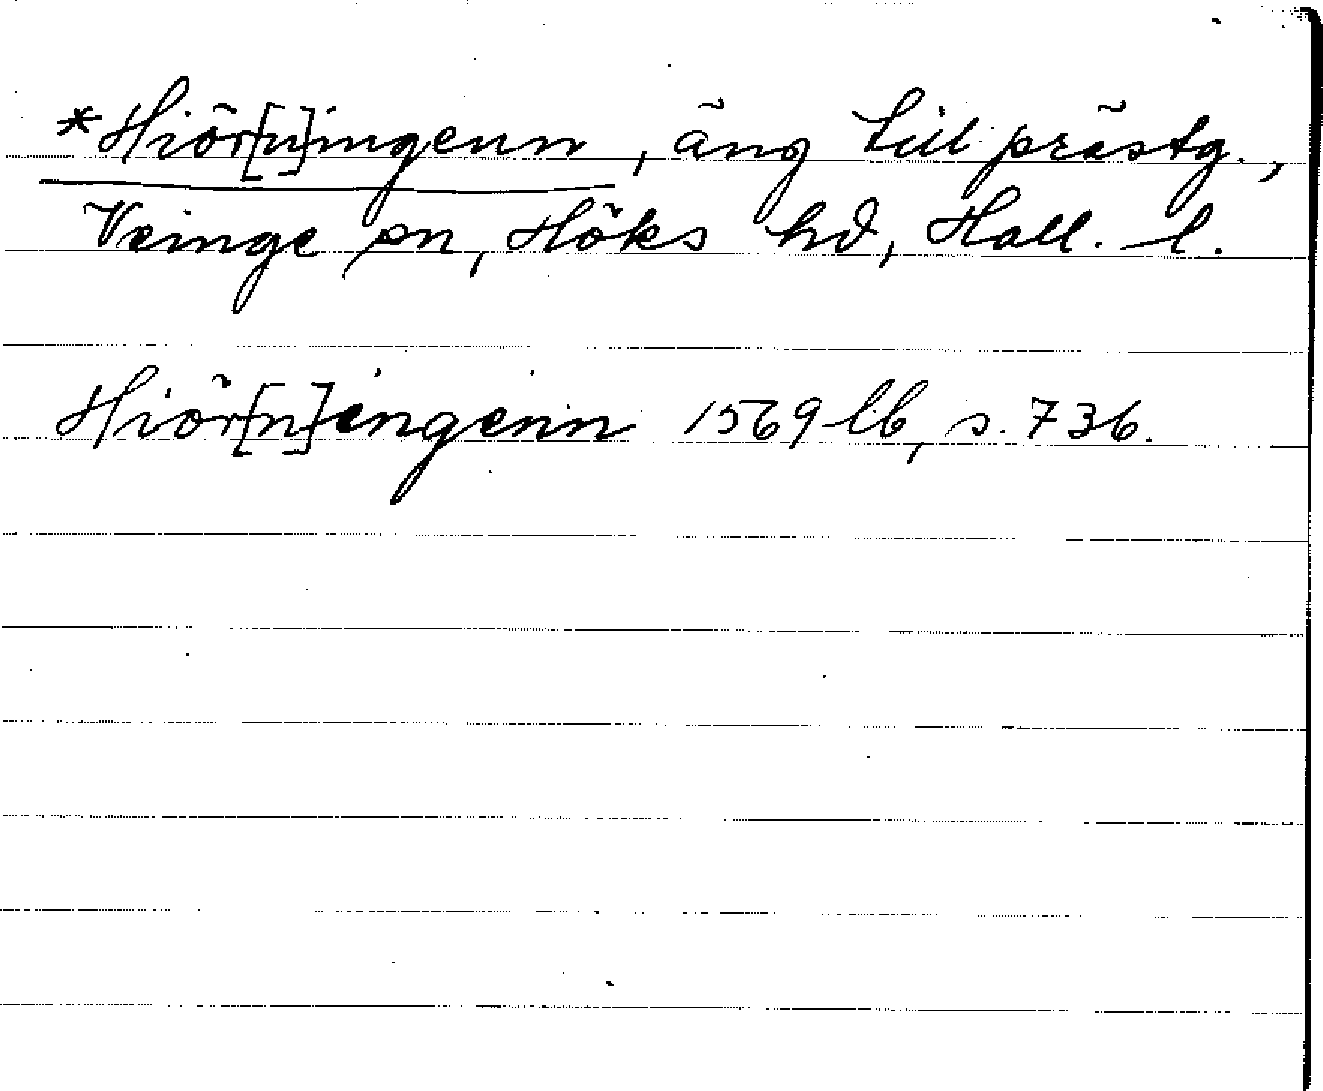 *Hiör[n]ingenn, äng till prästg.,
Veinge sn, Höks hd, Hall. l.
Hiör[n]engenn 1569 lb, s. 736.